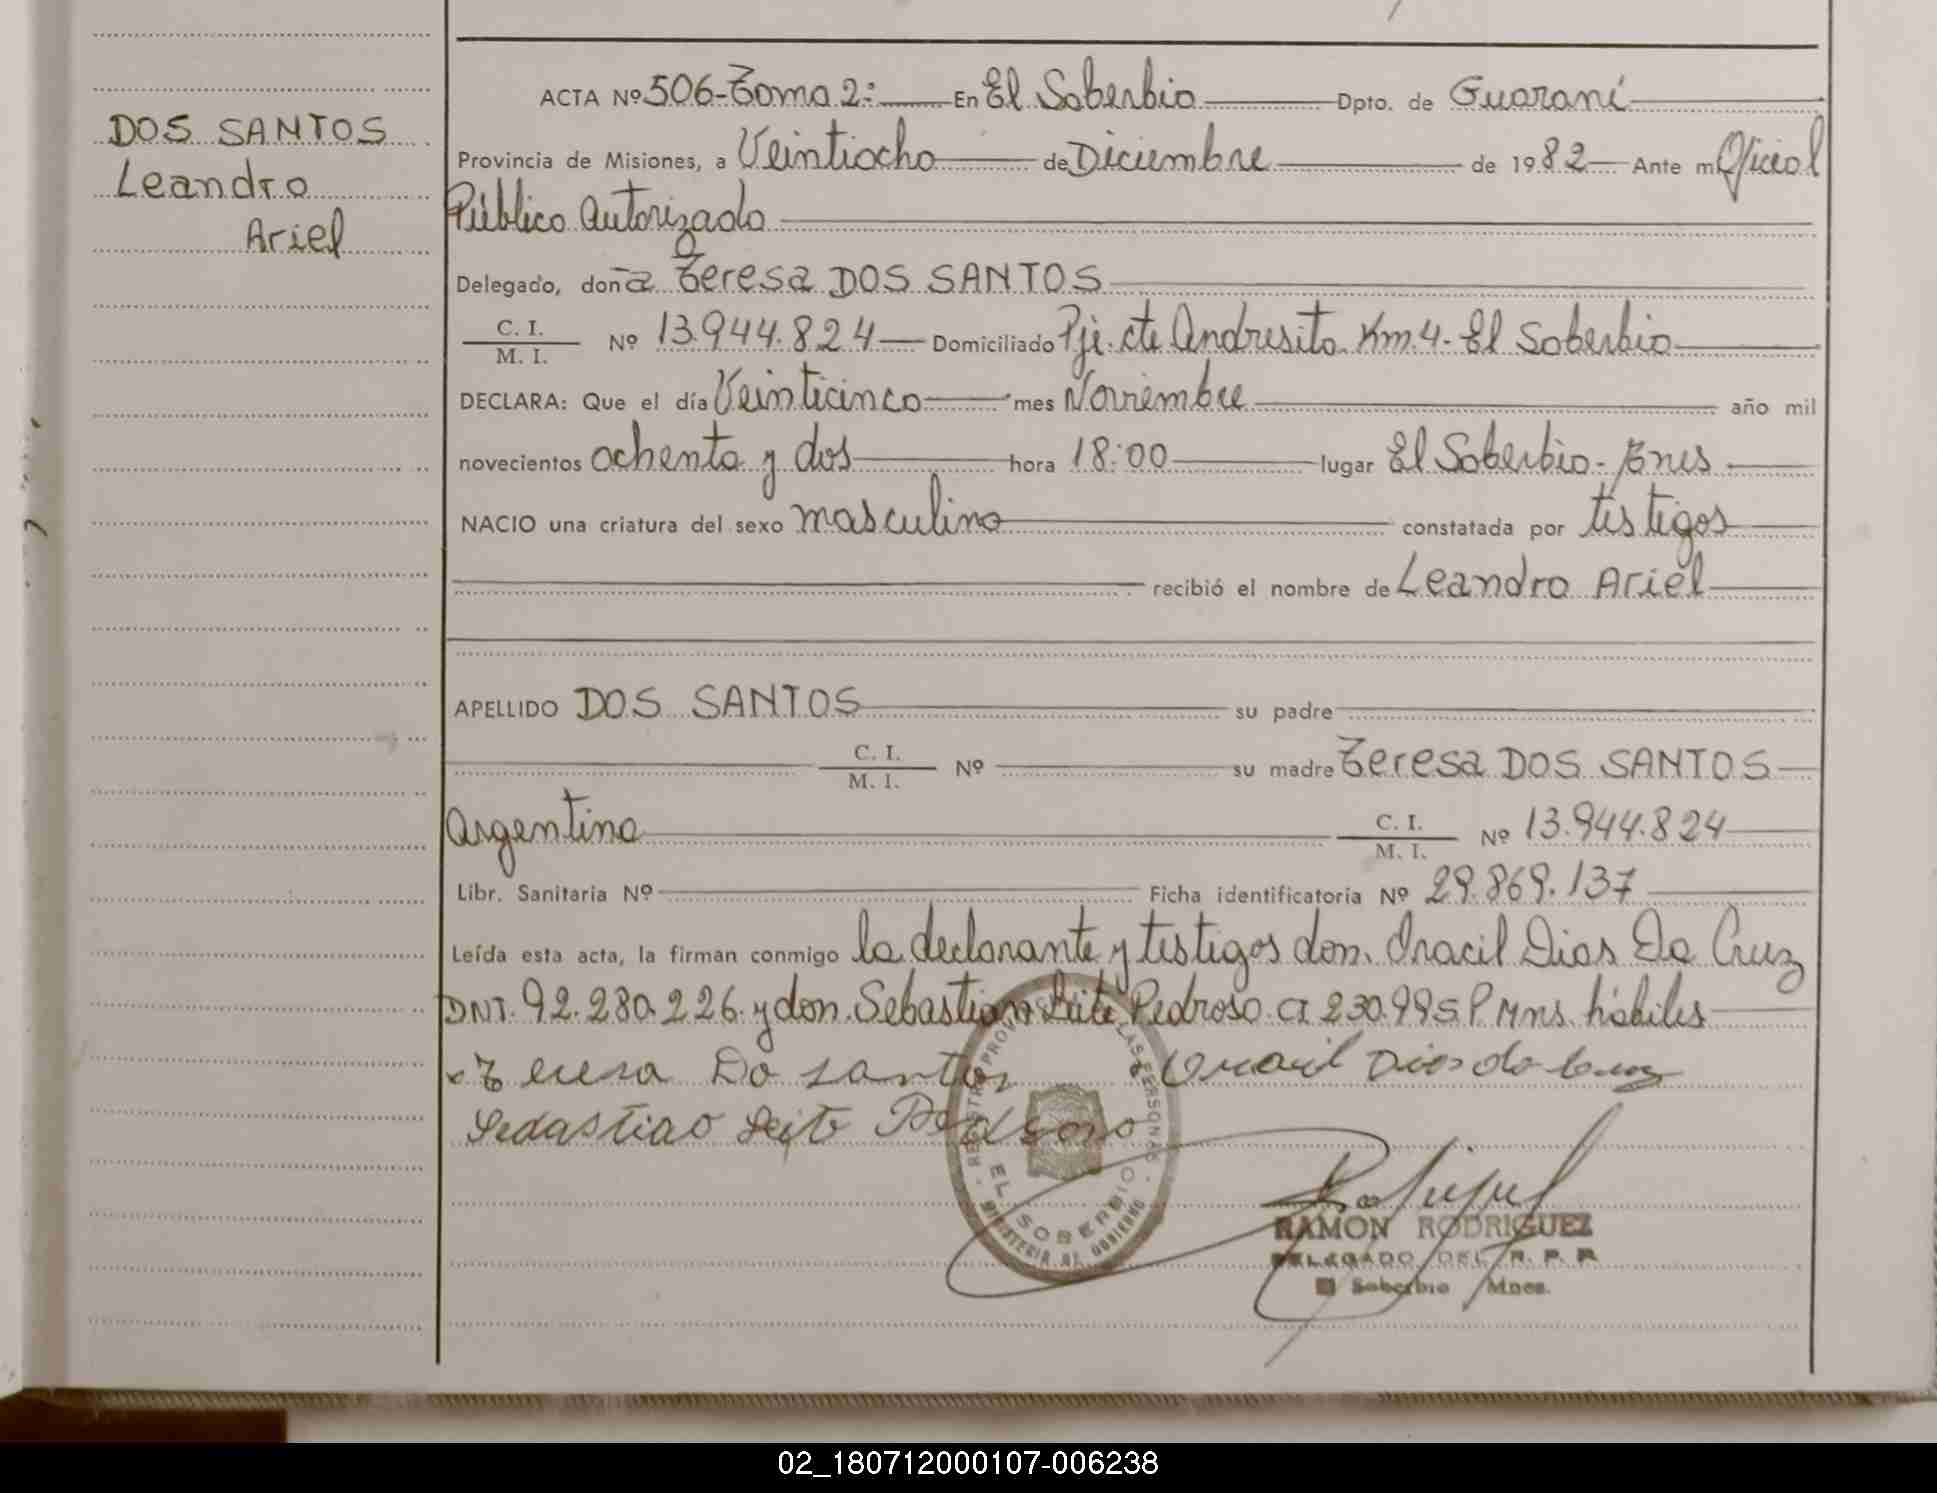 DOS SANTOS
Leandro
Ariel
ACTA Nº 506-Tomo 2: En El Soberbio Dpto. de Guaraní
Provincia de Misiones, a Veintiocho de Diciembre de 1982 Ante m Oficial
Público Autorizado
Delegado, doña Teresa DOS SANTOS
C. I.
M. I. Nº 13.944.824 Domiciliado Pje. cte Andresito Km 4 - El Soberbio
DECLARA: Que el día Veinticinco mes Noviembre año mil
novecientos ochenta y dos hora 18:00 lugar El Soberbio-
NACIO una criatura del sexo masculino constatada por testigos
recibió el nombre de Leandro Ariel
APELLIDO DOS SANTOS su padre
C. I.
M. I. Nº su madre Teresa DOS SANTOS
Argentina C. I.
M. I. Nº 13.944.824
Libr. Sanitaria Nº Ficha identificatoria Nº 29.869.137
Leída esta acta, la firman conmigo la declarante y testigos don. Oracil Dias Da Cruz
DNI. 92.280.226. y don. Sebastian Leite Pedroso. CI 230.995 P. Mns. hábiles
x Teresa Do santos Oracil Dias da Cruz
Sebastiao Leite Pedroso
REGISTRO PROV. LAS PERSONAS
EL SOBERBIO
MINISTERIO DE GOBIERNO
RAMON RODRIGUEZ
DELEGADO DEL R. P. P.
El Soberbio Mnes.
02_180712000107-006238